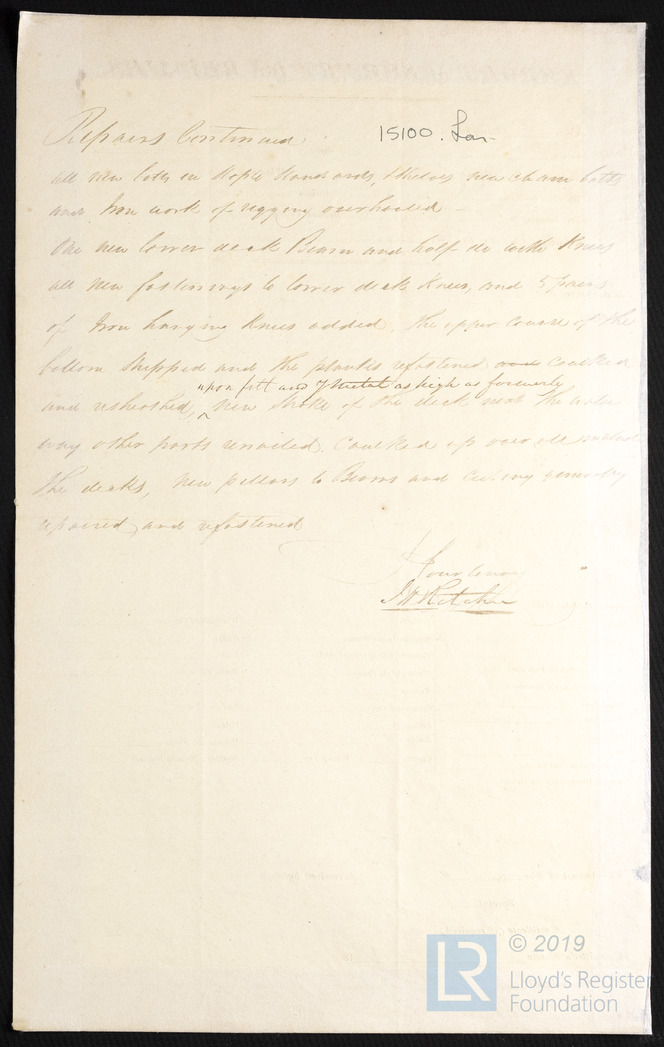 Repairs Continued 15100. Lon
all new bolts in Hopes Standards, & new chain bolts
and Iron work of rigging overhauled
One new lower deck Beam and half do with Knees
all new fastenings to lower deck Knees, and 5 pairs
of Iron hanging Knees added, the upper course of the
bottom Stripped and the planks refastened and caulked
upon felt and Y Metal as high as formerly
and resheathed, ^ New Strake of the deck next the water
way other parts renailed. Caulked up over all
the decks, New pillars to Beams and Ceiling generally
repaired and refastened
© 2019
Lloyd's Register
Foundation
LR